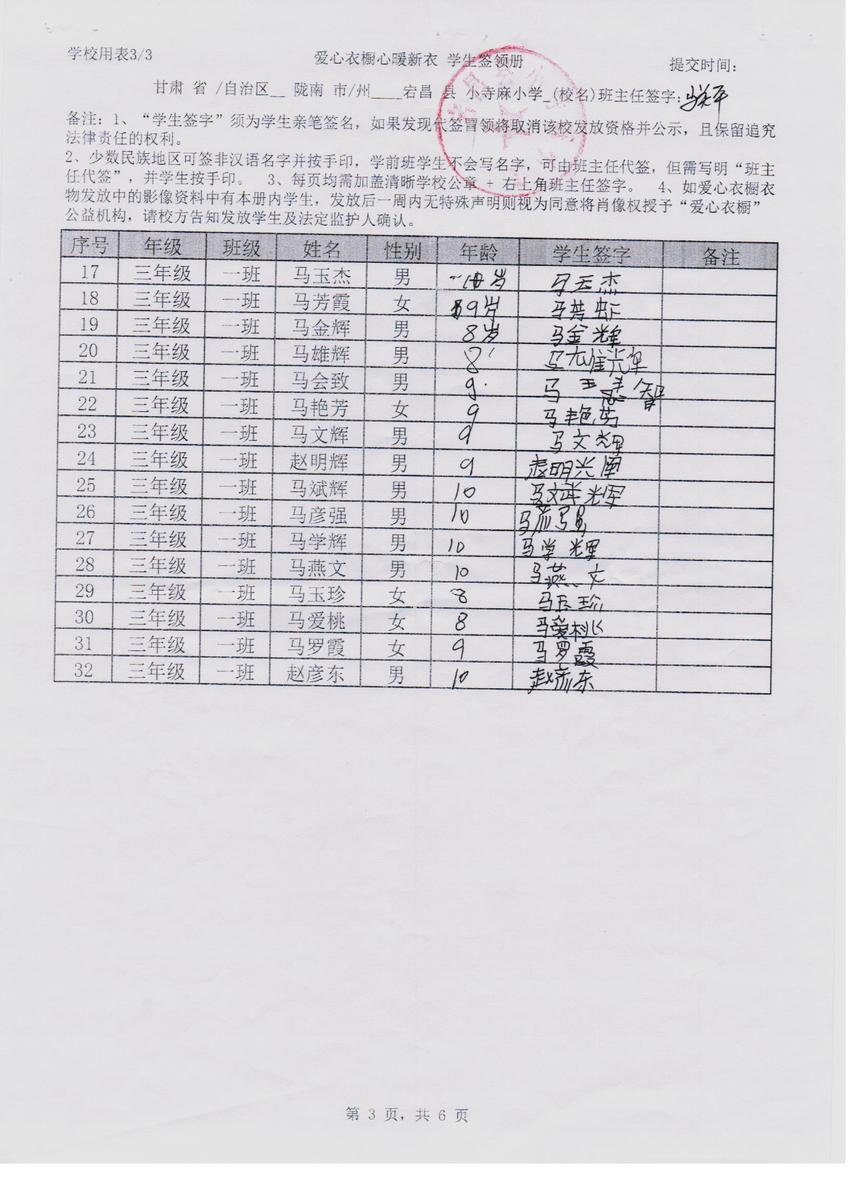 学校用表3/3
爱心衣橱心暖新衣 学生签领册
提交时间:
甘肃 省 /自治区__ 陇南 市/州____宕昌 县 小寺麻小学_(校名)班主任签字:
备注: 1、“学生签字”须为学生亲笔签名, 如果发现代签冒领将取消该校发放资格并公示, 且保留追究
法律责任的权利。
2、少数民族地区可签非汉语名字并按手印, 学前班学生不会写名字, 可由班主任代签, 但需写明“班主
任代签”, 并学生按手印。 3、每页均需加盖清晰学校公章 + 右上角班主任签字。 4、如爱心衣橱衣
物发放中的影像资料中有本册内学生, 发放后一周内无特殊声明则视为同意将肖像权授予“爱心衣橱”
公益机构, 请校方告知发放学生及法定监护人确认。
序号 年级 班级 姓名 性别 年龄 学生签字 备注
17 三年级 一班 马玉杰 男 10岁 马玉杰
18 三年级 一班 马芳霞 女 9岁 马芳虾
19 三年级 一班 马金辉 男 8岁 马金辉
20 三年级 一班 马雄辉 男 8 马雄辉
21 三年级 一班 马会致 男 9 马
22 三年级 一班 马艳芳 女 9 马艳芳
23 三年级 一班 马文辉 男 9 马文辉
24 三年级 一班 赵明辉 男 9 赵明辉
25 三年级 一班 马斌辉 男 10 马斌辉
26 三年级 一班 马彦强 男 10 马彦强
27 三年级 一班 马学辉 男 10 马学辉
28 三年级 一班 马燕文 男 10 马燕文
29 三年级 一班 马玉珍 女 8 马玉珍
30 三年级 一班 马爱桃 女 8 马爱桃
31 三年级 一班 马罗霞 女 9 马罗霞
32 三年级 一班 赵彦东 男 10 赵彦东
第 3 页, 共 6 页